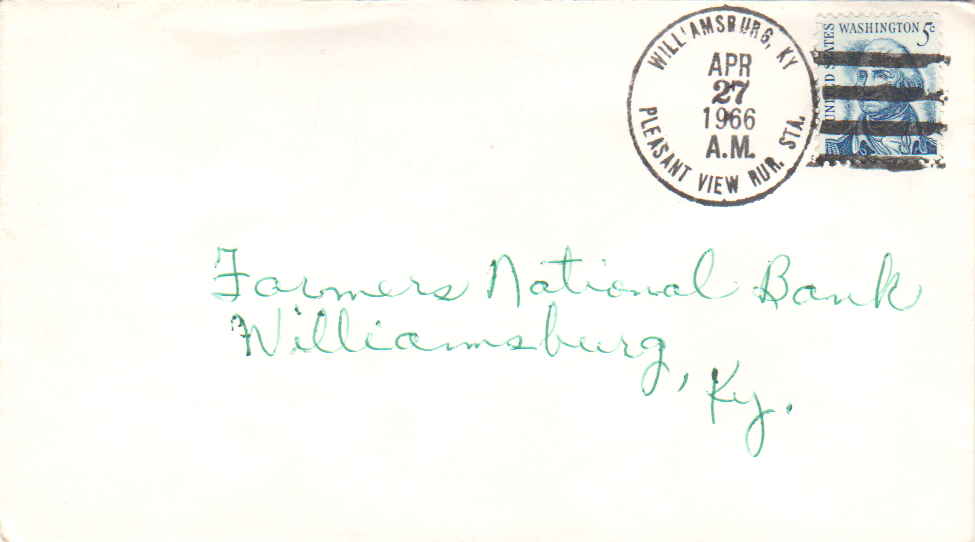 WILLIAMSBURG, KY
APR
27
1966
A.M.
PLEASANT VIEW RUR. STA.
UNITED STATES
WASHINGTON 5c
Farmers National Bank
Williamsburg,
Ky.